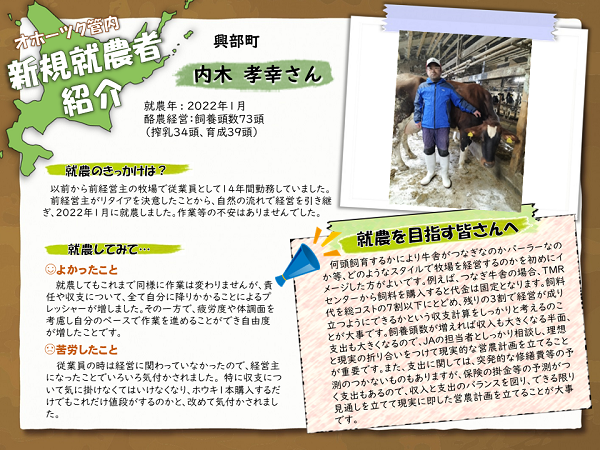 オホーツク管内
新規就農者
紹介
興部町
内木 孝幸さん
就農年：2022年1月
酪農経営：飼養頭数73頭
（搾乳34頭、育成39頭）
就農のきっかけは？
以前から前経営主の牧場で従業員として14年間勤務していました。
前経営主がリタイアを決意したことから、自然の流れで経営を引き継
ぎ、2022年1月に就農しました。作業等の不安はありませんでした。
就農してみて…
よかったこと
就農してもこれまで同様に作業は変わりませんが、責
任や収支について、全て自分に降りかかることによるプ
レッシャーが増しました。その一方で、疲労度や体調面を
考慮し自分のペースで作業を進めることができ自由度
が増したことです。
苦労したこと
従業員の時は経営に関わっていなかったので、経営主
になったことでいろいろ気付かされました。特に収支につ
いて気に掛けなくてはいけなくなり、ホウキ1本購入するだ
けでもこれだけ値段がするのかと、改めて気付かされまし
た。
就農を目指す皆さんへ
何頭飼育するかにより牛舎がつなぎなのかパーラーなの
か等、どのようなスタイルで牧場を経営するのかを初めにイ
メージした方がよいです。例えば、つなぎ牛舎の場合、TMR
センターから飼料を購入すると代金は固定となります。飼料
代を総コストの7割以下にとどめ、残りの3割で経営が成り
立つようにできるかという収支計算をしっかりと考えるのこ
とが大事です。飼養頭数が増えれば収入も大きくなる半面、
支出も大きくなるので、JAの担当者としっかり相談し、理想
と現実の折り合いをつけて現実的な営農計画を立てること
が重要です。また、支出に関しては、突発的な修繕費等の予
測のつかないものもありますが、保険の掛金等の予測がつ
く支出もあるので、収入と支出のバランスを図り、できる限り
見通しを立てて現実に即した営農計画を立てることが大事
です。